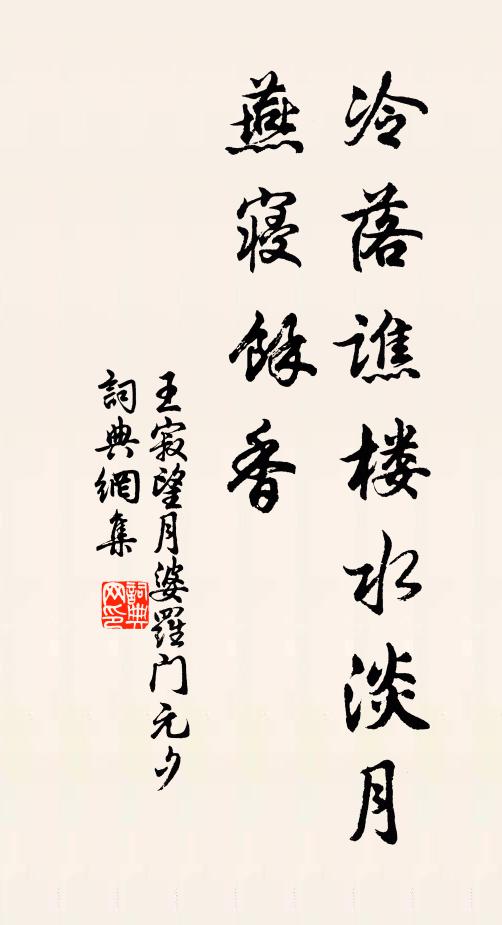 冷落譙楼水淡月
燕寝餘香
王寂望月婆羅门元夕
詞典網集
詞典网印